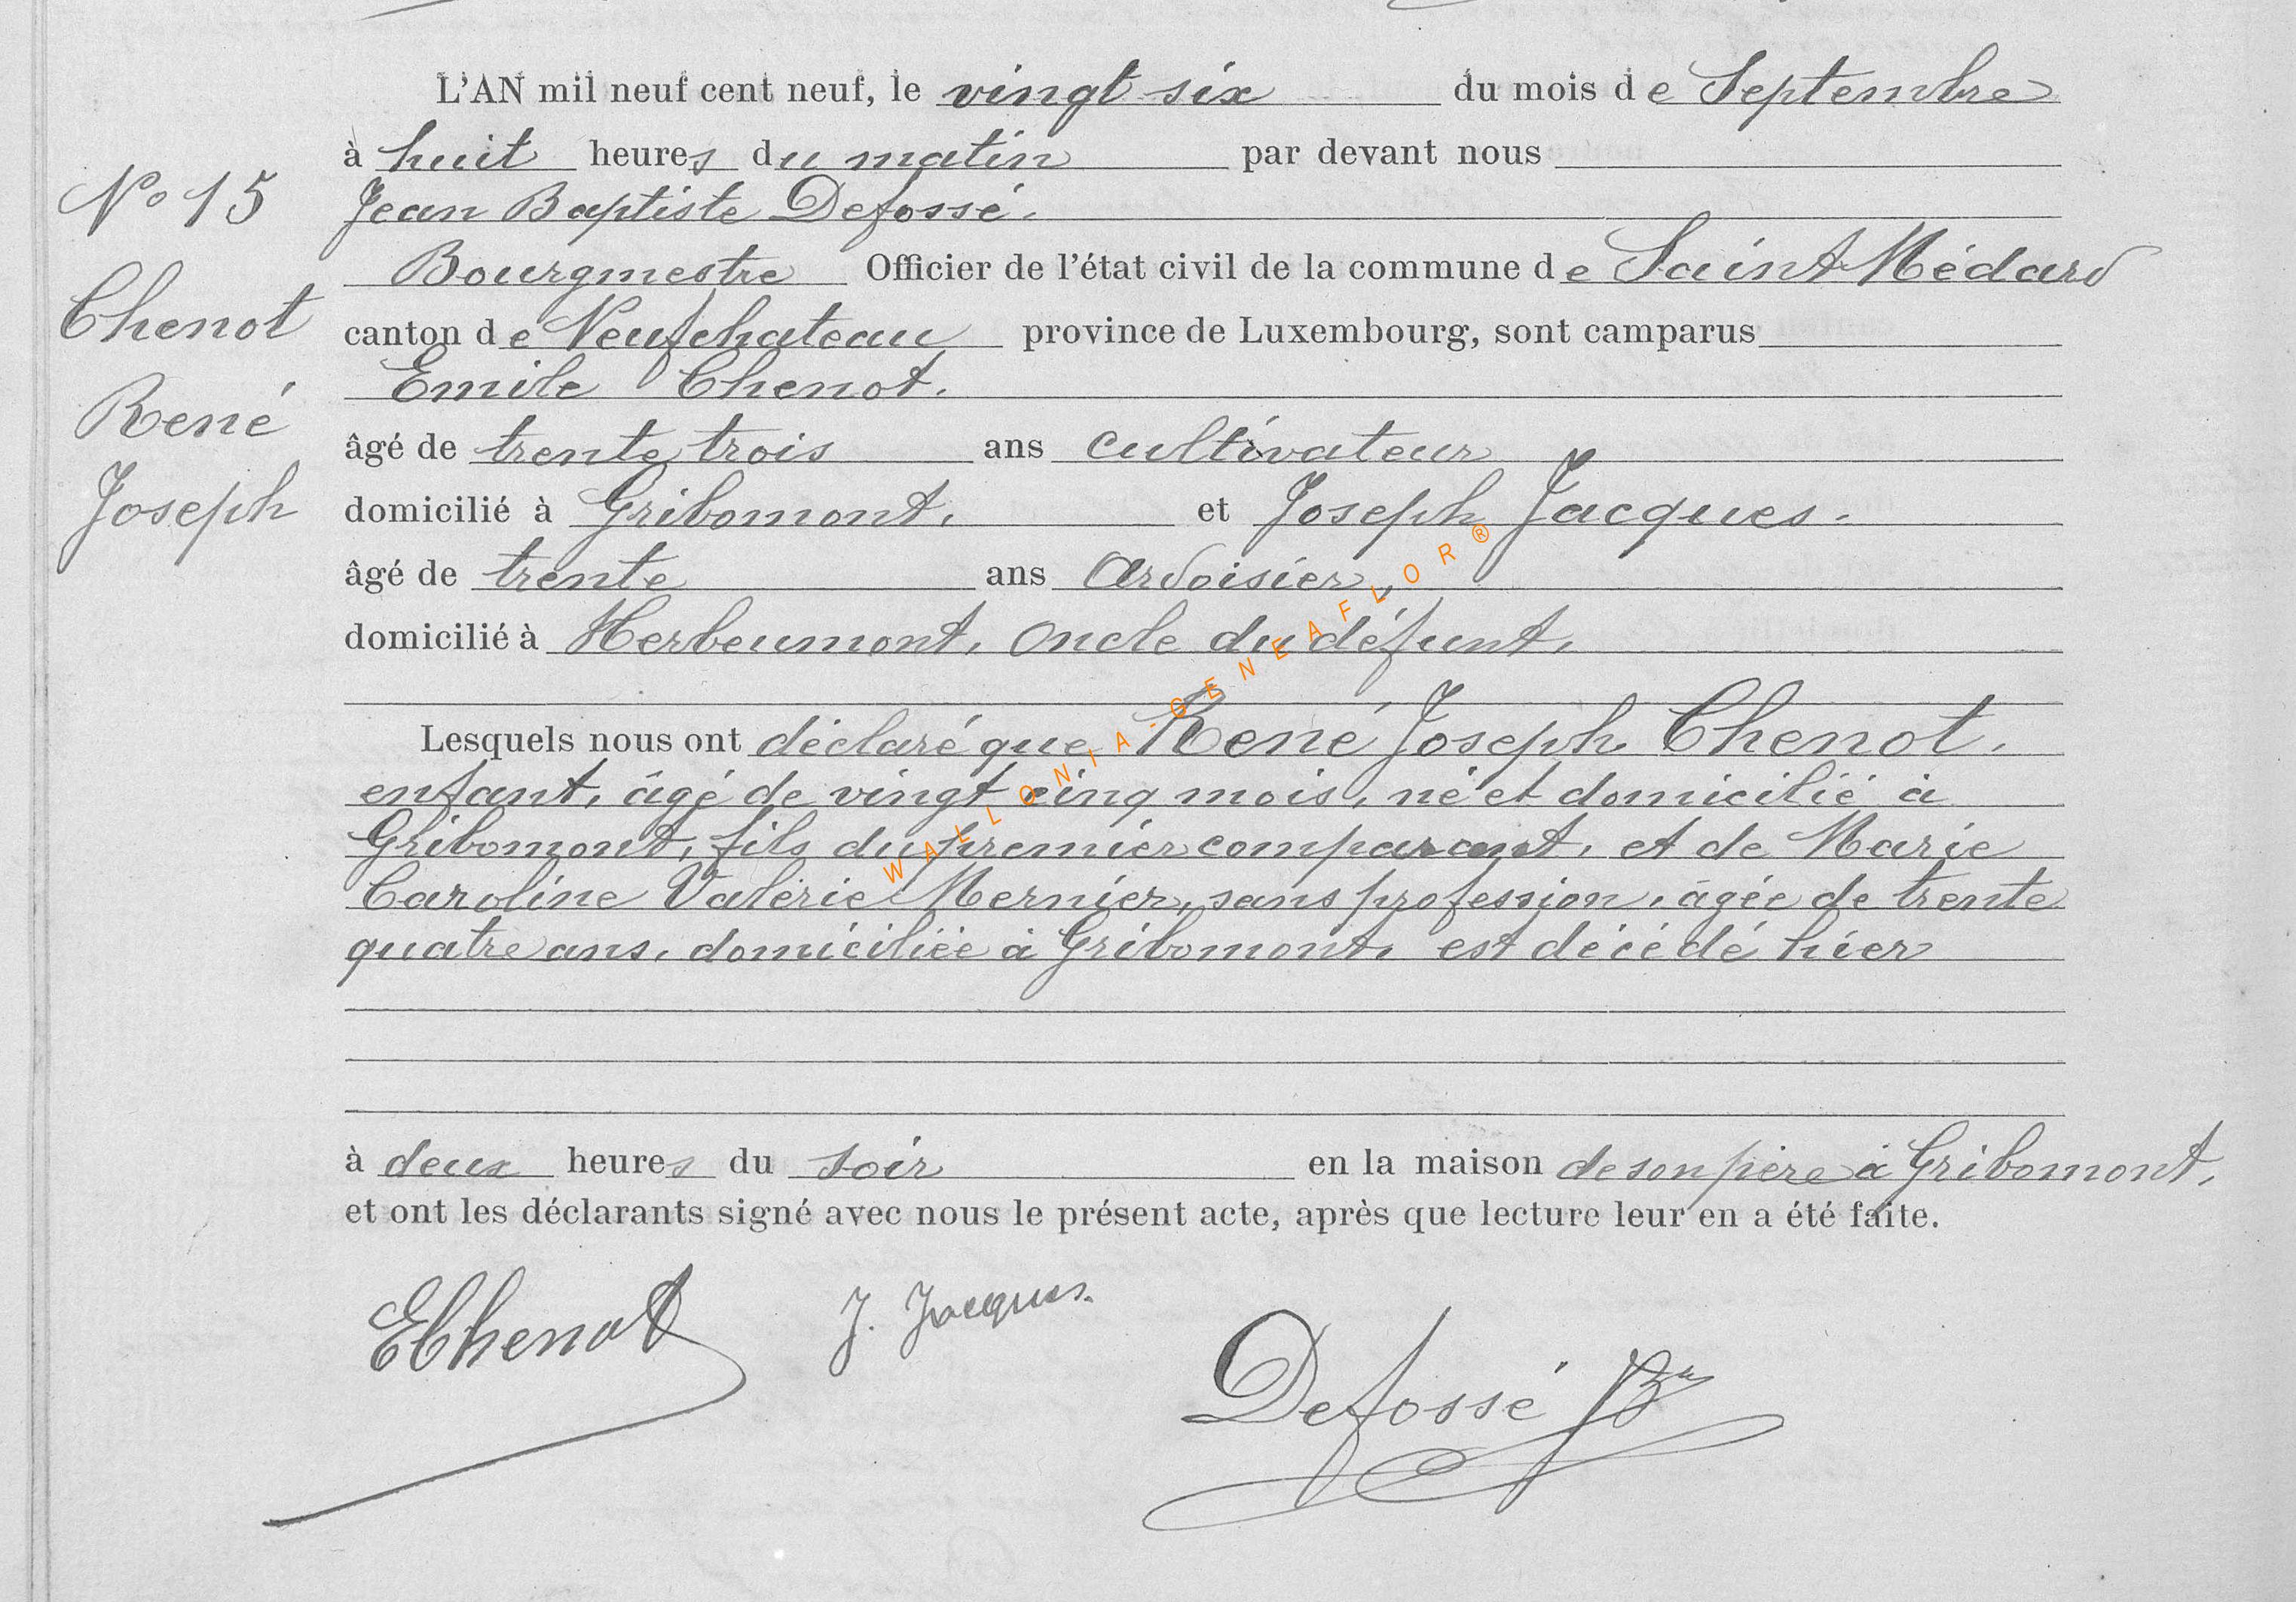 L'AN mil neuf cent neuf, le vingt six du mois de Septembre
à huit heures du matin par devant nous
N° 15
Jean Baptiste Defossé.
Bourgmestre Officier de l'état civil de la commune de Saint Médard
Chenot
canton de Neufchateau province de Luxembourg, sont camparus
Emile Chenot.
René
âgé de trente trois ans cultivateur
Joseph
domicilié à Gribomont, et Joseph Jacques.
âgé de trente ans Ardoisier,
domicilié à Herbeumont, oncle du défunt,
Lesquels nous ont déclaré que René Joseph Chenot,
enfant, âgé de vingt cinq mois, né et domicilié à
Gribomont, fils du premier comparant, et de Marie
Caroline Valérie Mernier, sans profession, âgée de trente
quatre ans, domiciliée à Gribomont, est décédé hier
à deux heures du soir en la maison de son père à Gribomont,
et ont les déclarants signé avec nous le présent acte, après que lecture leur en a été faite.
EChenot
J. Jacques.
Defossé JBte
WALLONIA-GENEAFLOR®